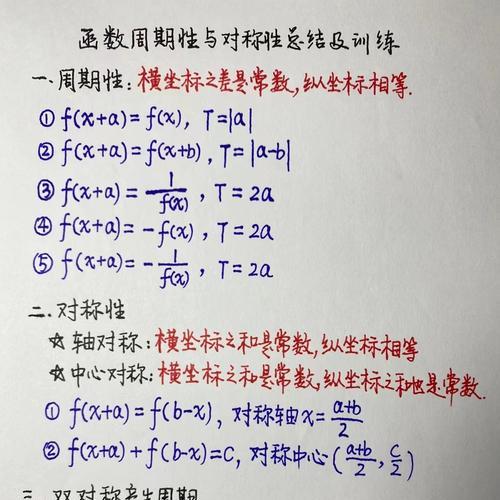 函数周期性与对称性总结及训练
一、周期性：横坐标之差是常数，纵坐标相等.
① f(x+a)=f(x)，T=|a|
② f(x+a)=f(x+b)，T=|a-b|
③ f(x+a)=1/f(x)，T=2a
④ f(x+a)=-f(x)，T=2a
⑤ f(x+a)=-1/f(x)，T=2a
二、对称性
☆轴对称：横坐标之和是常数，纵坐标相等
☆中心对称：横坐标之和是常数，纵坐标之和也是常数.
① f(x+a)=f(b-x)，对称轴x=(a+b)/2
② f(x+a)+f(b-x)=C，对称中心((a+b)/2, C/2)
三、双对称产生周期